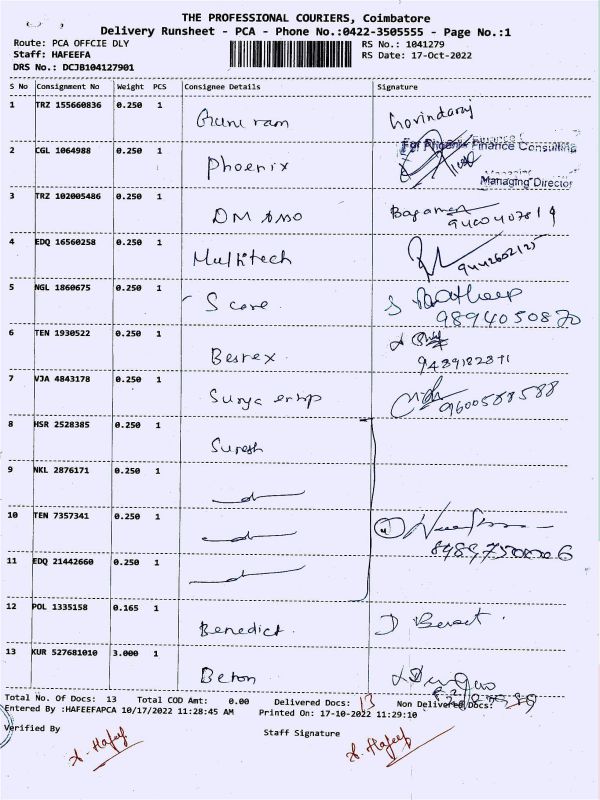 THE PROFESSIONAL COURIERS, Coimbatore
Delivery Runsheet - PCA - Phone No.:0422-3505555 - Page No.:1
Route: PCA OFFCIE DLY
RS No.: 1041279
Staff: HAFEEFA
RS Date: 17-Oct-2022
DRS No.: DCJB104127901
S No Consignment No Weight PCS Consignee Details Signature
1 TRZ 155660836 0.250 1 Govindaraj
2 CGL 1064988 0.250 1 Phoenix
For Phoenix Finance Consulting
Managing Director
3 TRZ 102005486 0.250 1 DM
4 EDQ 16560258 0.250 1 Multitech
5 NGL 1860675 0.250 1 S care
9894050870
6 TEN 1930522 0.250 1 Besrex
7 VJA 4843178 0.250 1 Surya
9600588588
8 HSR 2528385 0.250 1 Suresh
9 NKL 2876171 0.250 1
10 TEN 7357341 0.250 1
11 EDQ 21442660 0.250 1
12 POL 1335158 0.165 1 Benedict
13 KUR 527681010 3.000 1 Beton
Total No. Of Docs: 13 Total COD Amt: 0.00 Delivered Docs: 13 Non Delivered Docs:
Entered By :HAFEEFAPCA 10/17/2022 11:28:45 AM Printed On: 17-10-2022 11:29:10
Verified By
Staff Signature
A. Hafeef
A. Hafeef